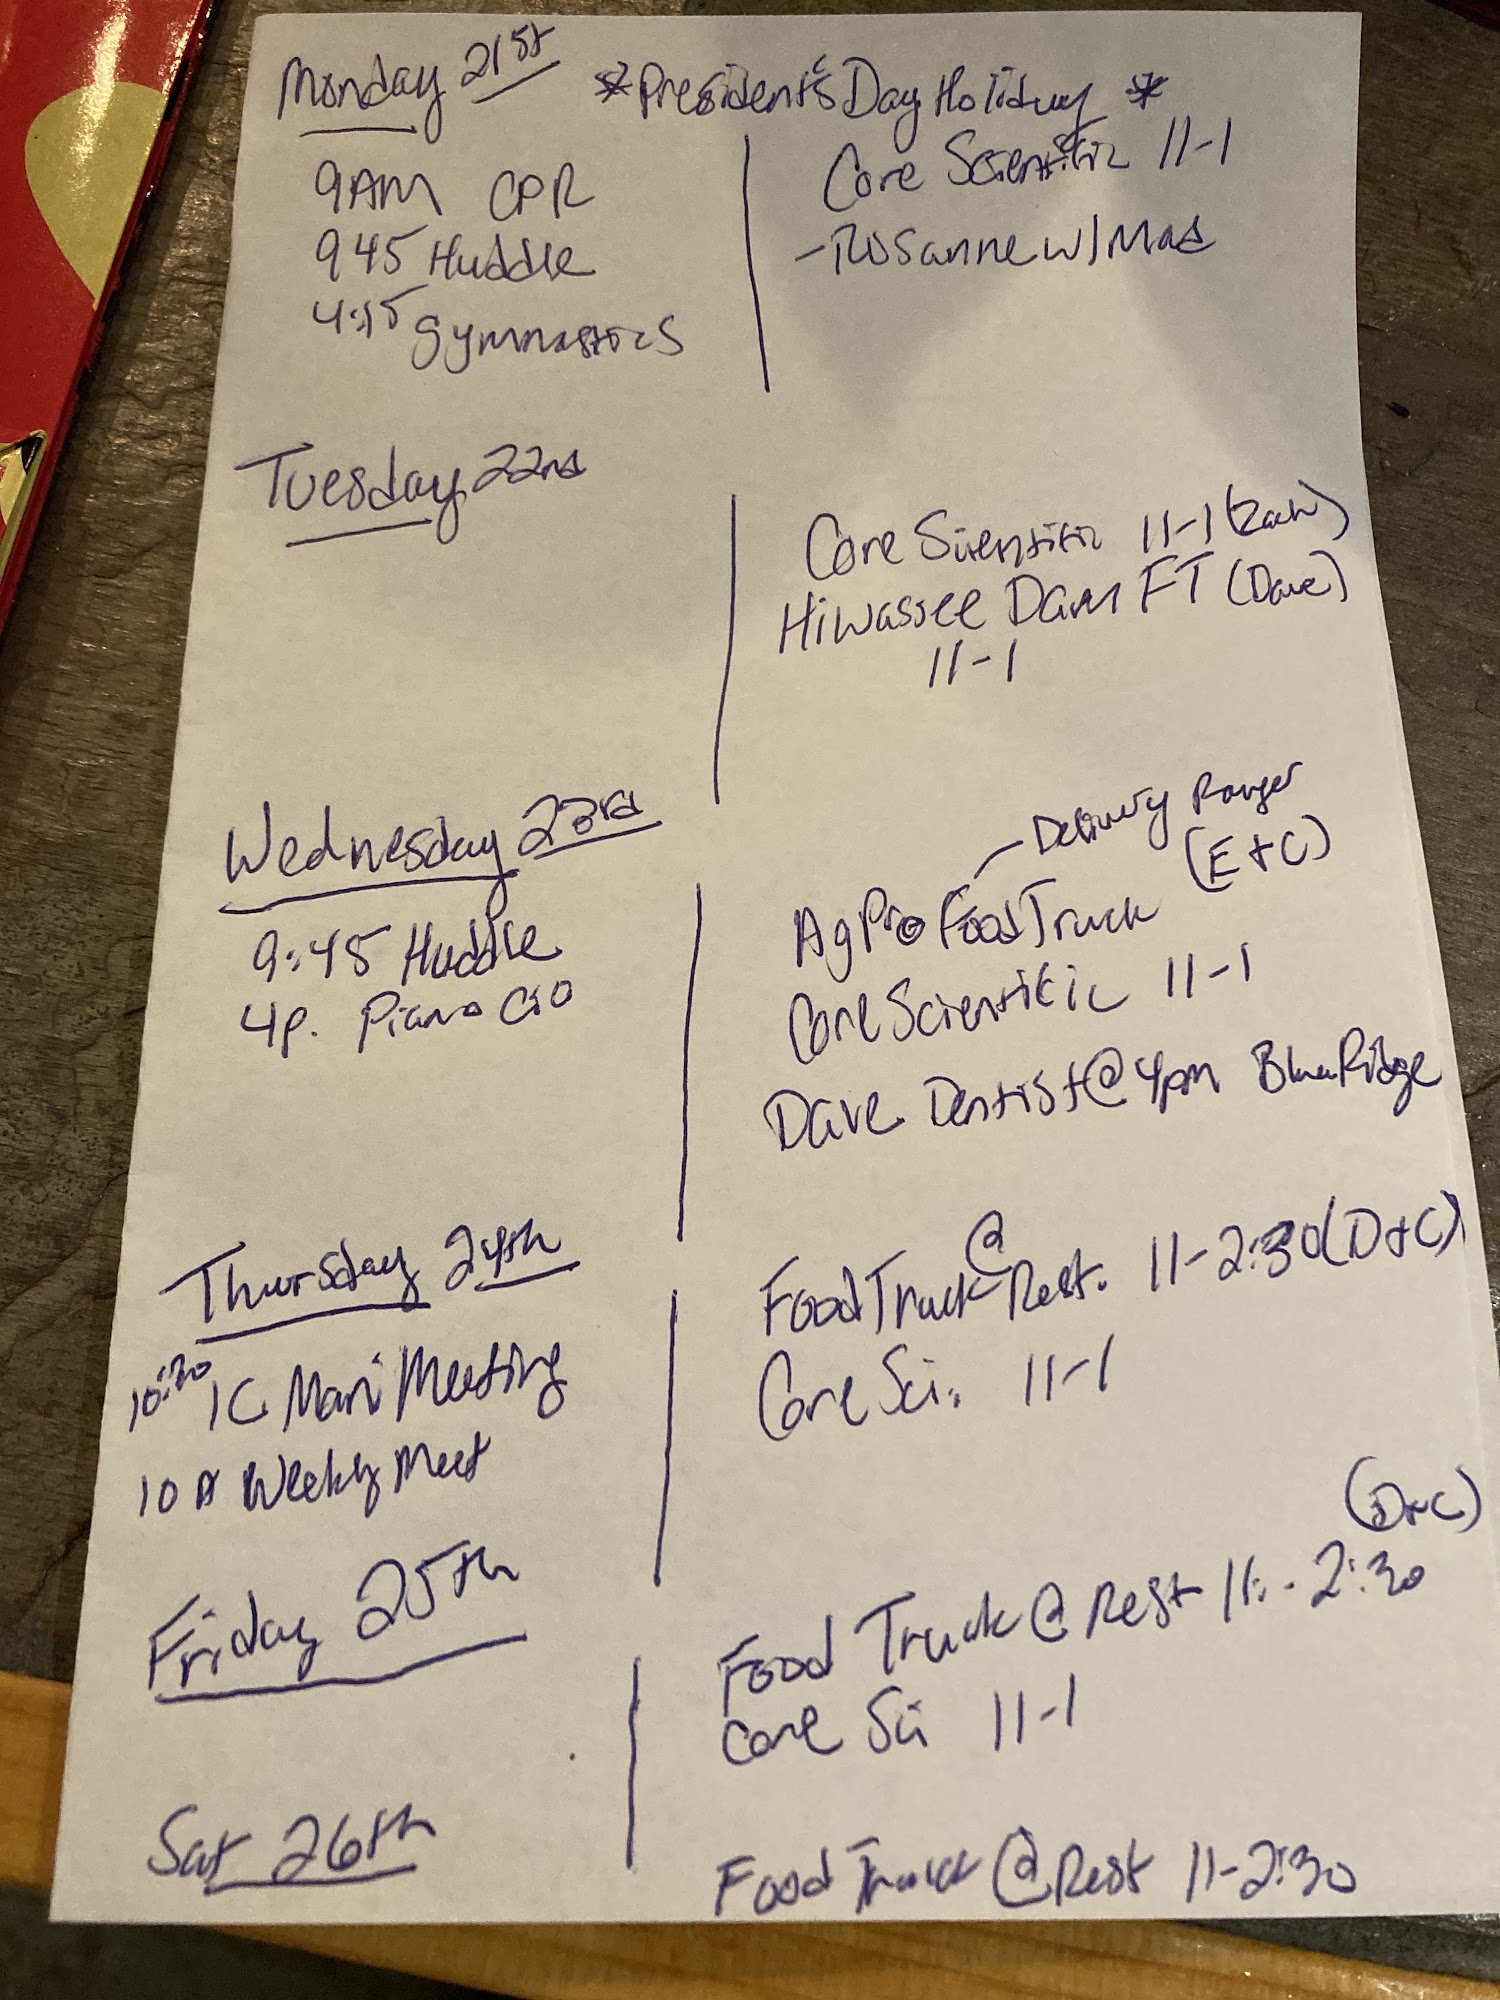 Monday 21st *President's Day Holiday *
9AM CPR
945 Huddle
4:15 Gymnastics
Core Scientific 11-1
-Rosanne w/Mad
Tuesday 22nd
Core Scientific 11-1 (Zach)
Hiwassee Dam FT (Dave)
11-1
Wednesday 23rd
9:45 Huddle
4p. Piano Gio
- Delivery Ranger
AgPro Food Truck (E+C)
Core Scientific 11-1
Dave Dentist @ 4pm Blue Ridge
Thursday 24th
10:30 IC Mari Meeting
10 A Weekly Meet
Food Truck @ Rest. 11-2:30 (D+C)
Core Sci. 11-1
Friday 25th
(D+C)
Food Truck @ Rest 11:-2:30
Core Sci 11-1
Sat 26th
Food Truck @ Rest 11-2:30